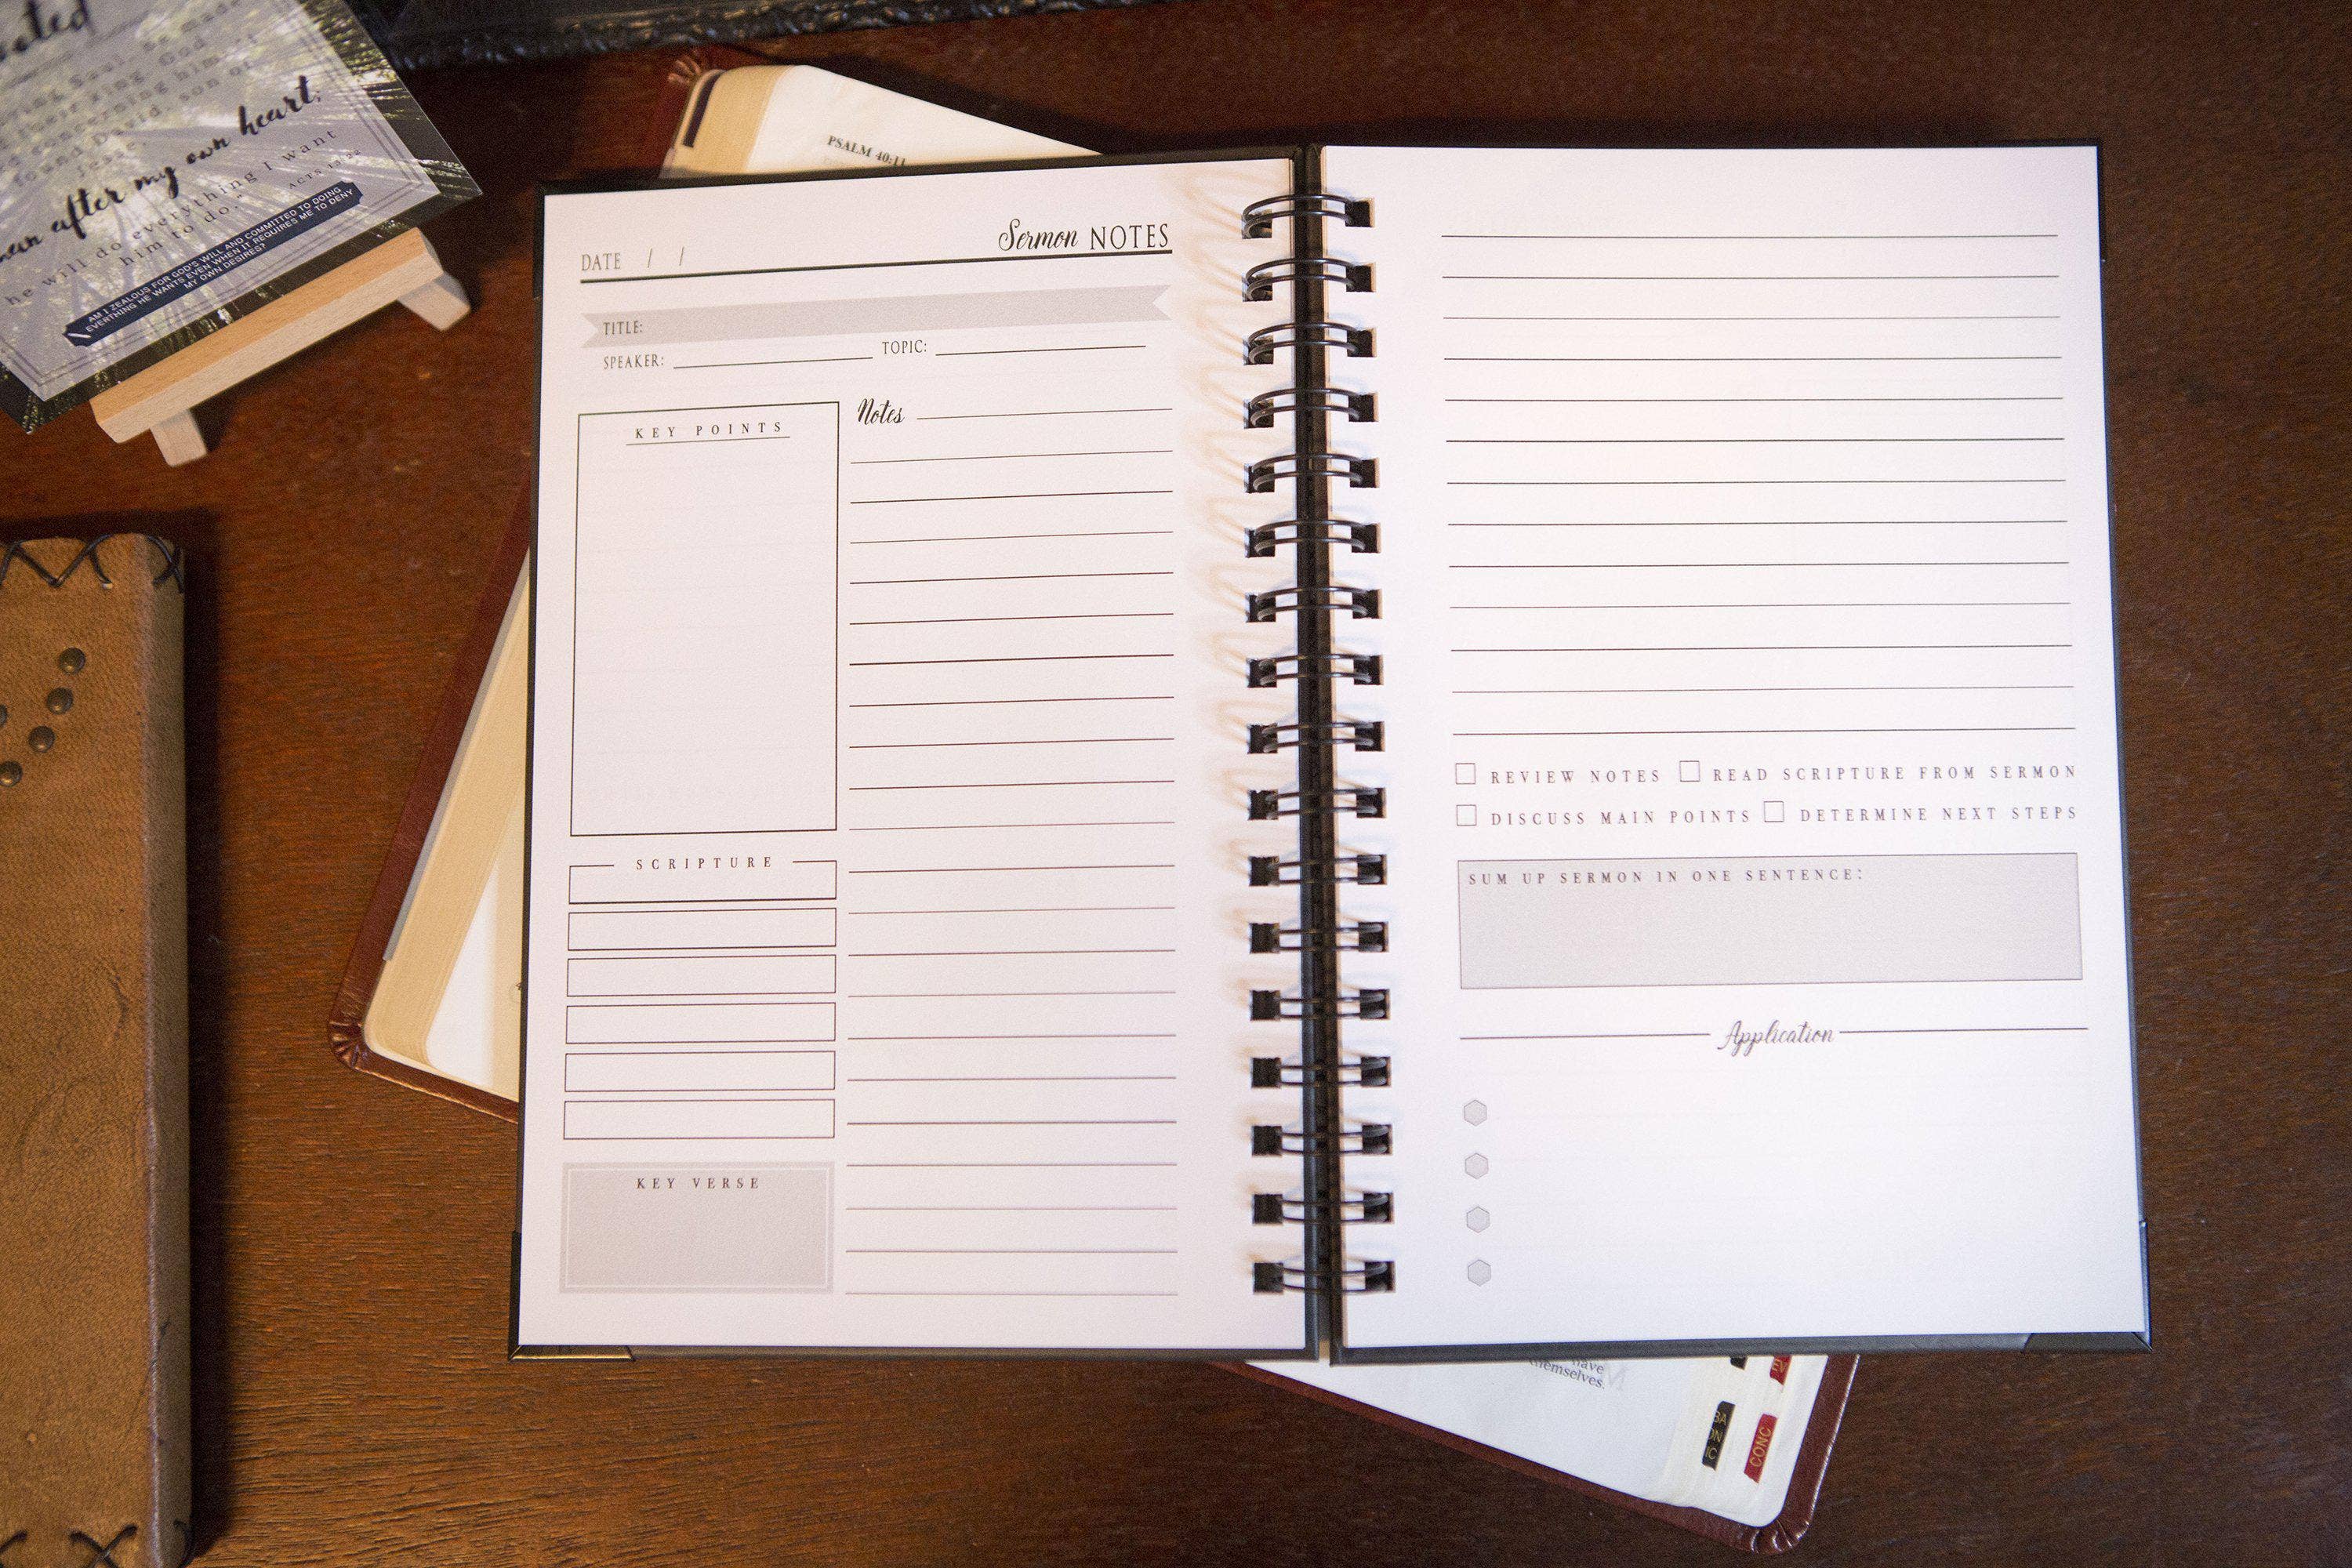 ing Saul, God
concerning him: 'I
found David, son of
Jesse,
man after my own heart,
he will do everything I want
him to do."
ACTS 13:22
AM I ZEALOUS FOR GOD'S WILL AND COMMITTED TO DOING
EVERYTHING HE WANTS EVEN WHEN IT REQUIRES ME TO DENY
MY OWN DESIRES?
PSALM 40:11
DATE / /
Sermon NOTES
TITLE:
SPEAKER:
TOPIC:
KEY POINTS
Notes
SCRIPTURE
KEY VERSE
REVIEW NOTES
READ SCRIPTURE FROM SERMON
DISCUSS MAIN POINTS
DETERMINE NEXT STEPS
SUM UP SERMON IN ONE SENTENCE:
Application
have
themselves.
CONC